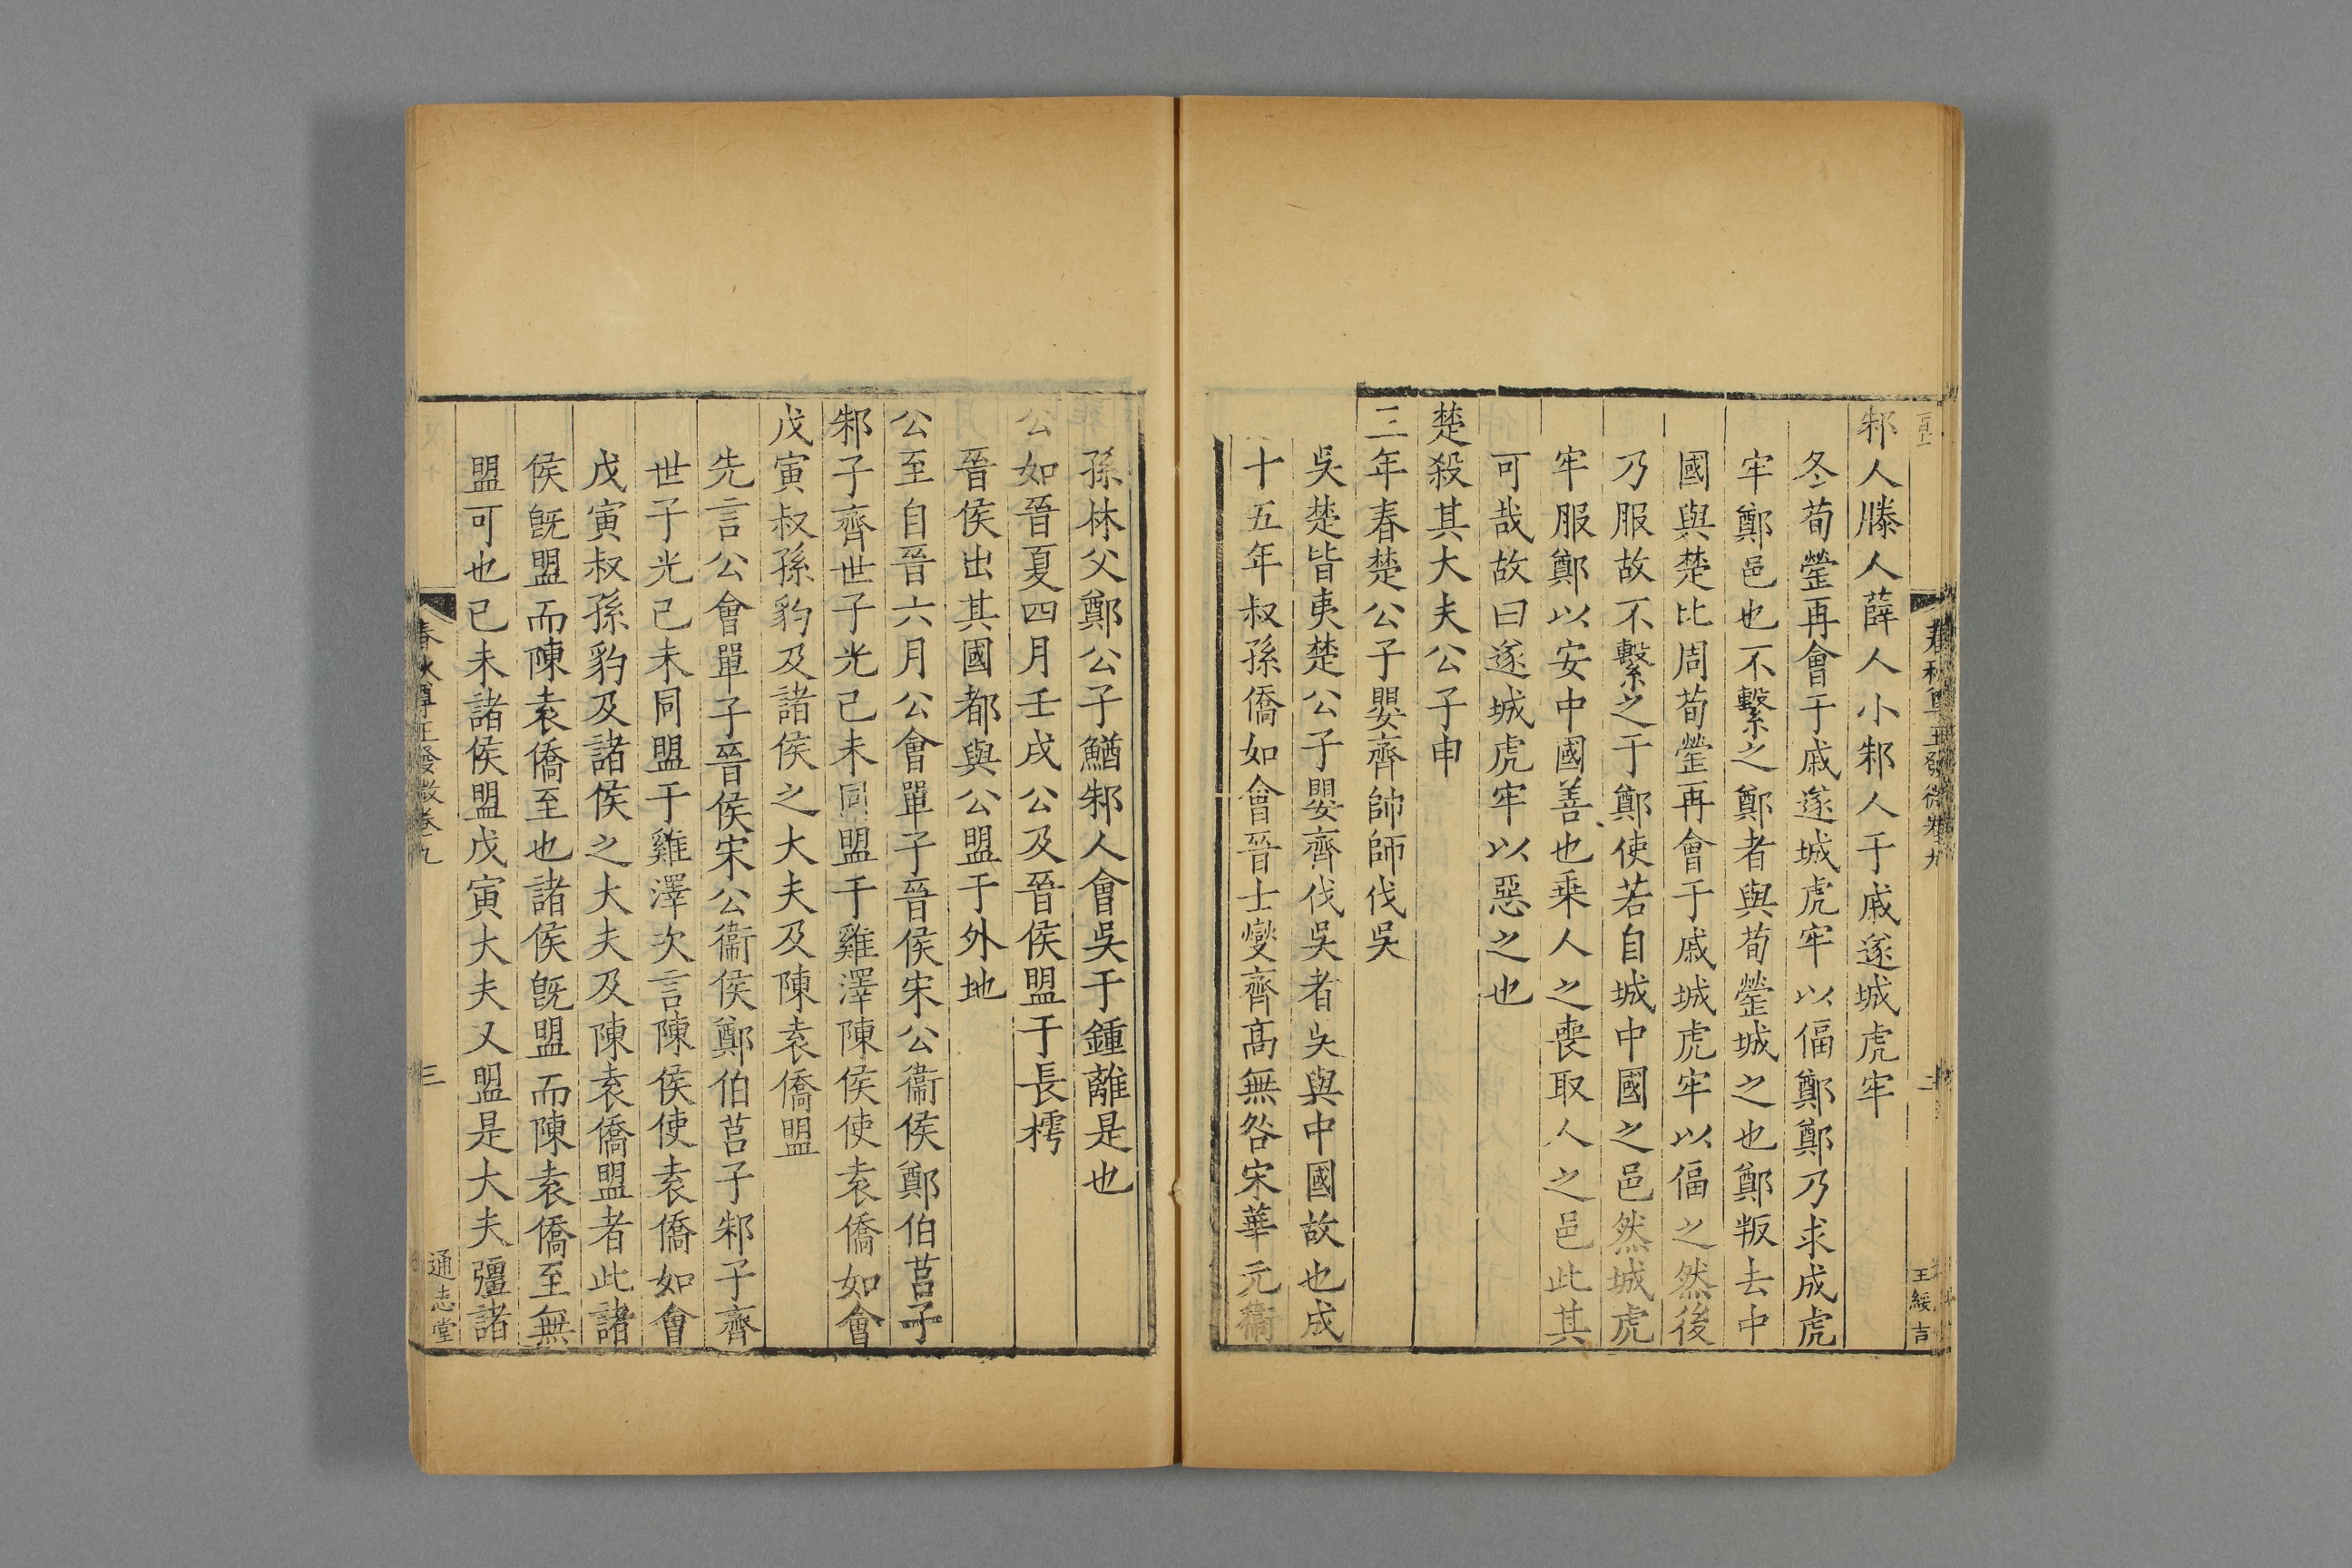 邾人滕人薛人小邾人于戚遂城虎牢
冬荀罃再會于戚遂城虎牢以偪鄭鄭乃求成虎
牢鄭邑也不繫之鄭者與荀罃城之也鄭叛去中
國與楚比周荀罃再會于戚城虎牢以偪之然後
乃服故不繫之于鄭使若自城中國之邑然城虎
牢服鄭以安中國善也乘人之喪取人之邑此其
可哉故曰遂城虎牢以惡之也
楚殺其大夫公子申
三年春楚公子嬰齊帥師伐吳
吳楚皆夷楚公子嬰齊伐吳者吳與中國故也成
十五年叔孫僑如會晉士燮齊髙無咎宋華元衞
王綏吉
孫林父鄭公子鰌邾人會吳于鍾離是也
公如晉夏四月壬戌公及晉侯盟于長樗
晉侯出其國都與公盟于外地
公至自晉六月公會單子晉侯宋公衞侯鄭伯莒子
邾子齊世子光己未同盟于雞澤陳侯使袁僑如會
戊寅叔孫豹及諸侯之大夫及陳袁僑盟
先言公會單子晉侯宋公衞侯鄭伯莒子邾子齊
世子光己未同盟于雞澤次言陳侯使袁僑如會
戊寅叔孫豹及諸侯之大夫及陳袁僑盟者此諸
侯旣盟而陳袁僑至也諸侯旣盟而陳袁僑至無
盟可也己未諸侯盟戊寅大夫又盟是大夫彊諸
春秋尊王發微卷九
三
通志堂